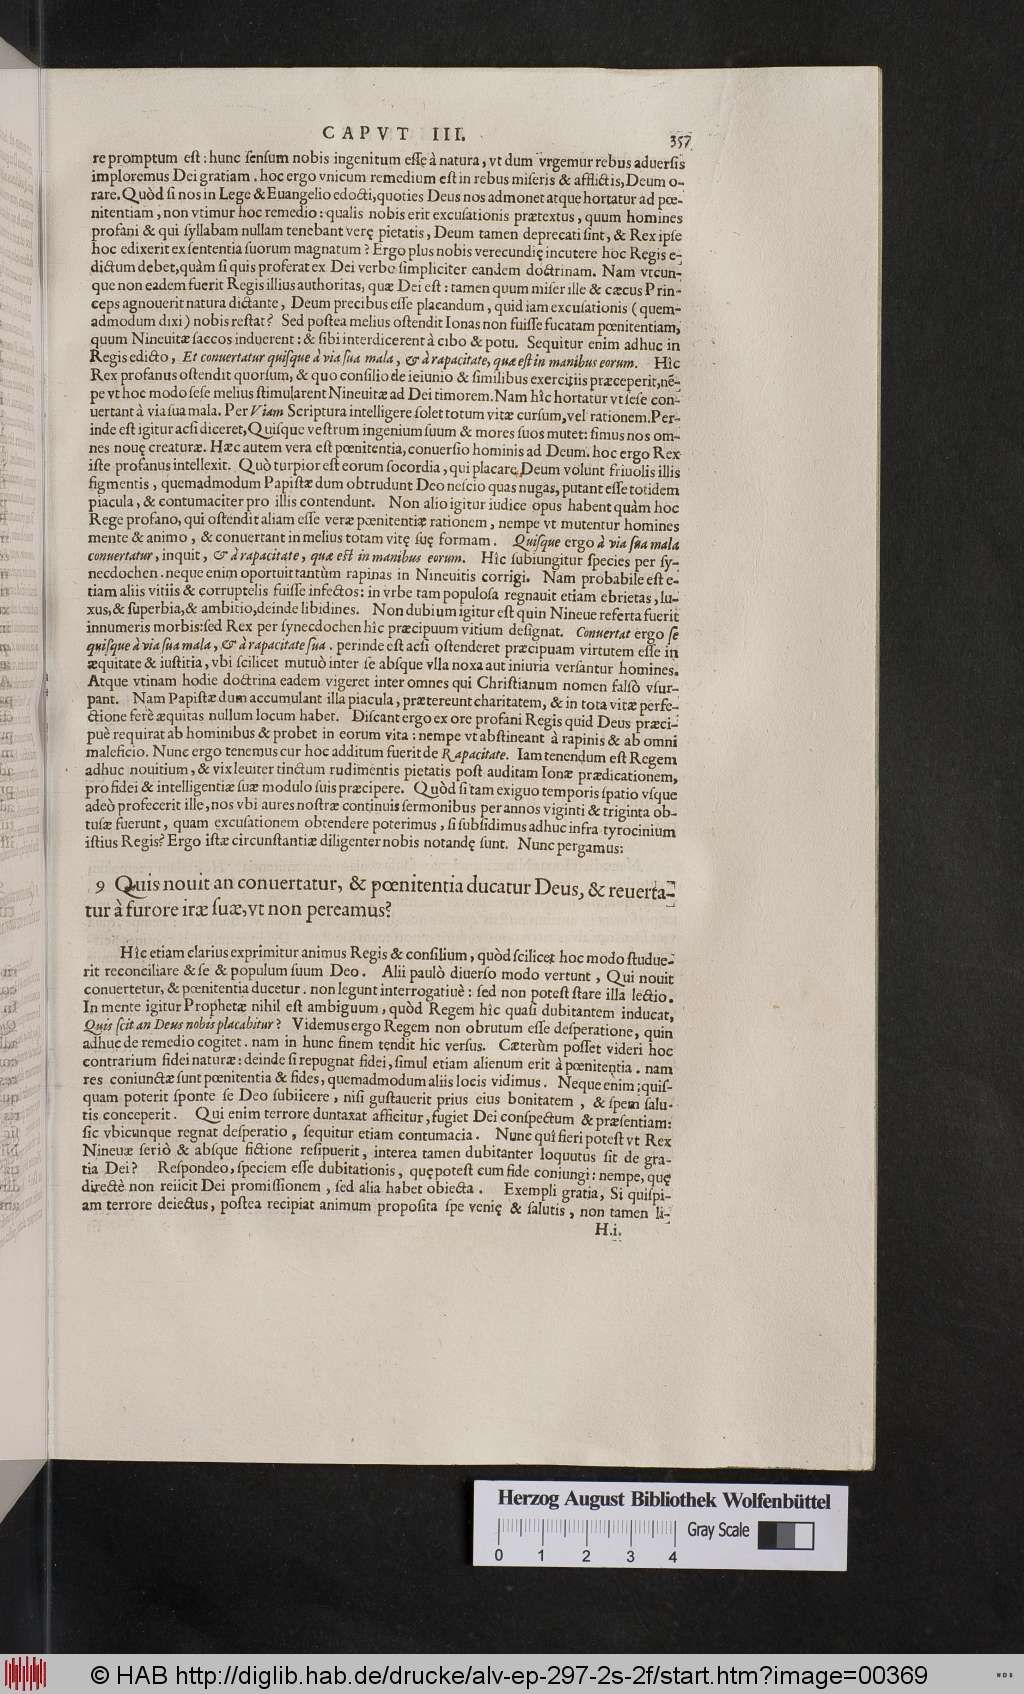 CAPVT III.
357
re promptum eſt : hunc ſenſum nobis ingenitum eſſe à natura, vt dum vrgemur rebus aduerſis
imploremus Dei gratiam . hoc ergo vnicum remedium eſt in rebus miſeris & afflictis, Deum o-
rare. Quòd ſi nos in Lege & Euangelio edocti, quoties Deus nos admonet atque hortatur ad pœ-
nitentiam, non vtimur hoc remedio : qualis nobis erit excuſationis prætextus, quum homines
profani & qui ſyllabam nullam tenebant verę pietatis, Deum tamen deprecati ſint, & Rex ipſe
hoc edixerit ex ſententia ſuorum magnatum ? Ergo plus nobis verecundię incutere hoc Regis e-
dictum debet, quàm ſi quis proferat ex Dei verbo ſimpliciter eandem doctrinam. Nam vtcun-
que non eadem fuerit Regis illius authoritas, quæ Dei eſt : tamen quum miſer ille & cæcus Prin-
ceps agnouerit natura dictante, Deum precibus eſſe placandum, quid iam excuſationis ( quem-
admodum dixi ) nobis reſtat ? Sed poſtea melius oſtendit Ionas non fuiſſe fucatam pœnitentiam,
quum Nineuitæ ſaccos induerent : & ſibi interdicerent à cibo & potu. Sequitur enim adhuc in
Regis edicto, Et conuertatur quiſque à via ſua mala, & à rapacitate, quæ eſt in manibus eorum. Hîc
Rex profanus oſtendit quorſum, & quo conſilio de ieiunio & ſimilibus exercitiis præceperit, nē-
pe vt hoc modo ſeſe melius ſtimularent Nineuitæ ad Dei timorem. Nam hîc hortatur vt ſeſe con-
uertant à via ſua mala. Per Viam Scriptura intelligere ſolet totum vitæ curſum, vel rationem. Per-
inde eſt igitur acſi diceret, Quiſque veſtrum ingenium ſuum & mores ſuos mutet : ſimus nos om-
nes nouę creaturæ. Hæc autem vera eſt pœnitentia, conuerſio hominis ad Deum. hoc ergo Rex
iſte profanus intellexit. Quò turpior eſt eorum ſocordia, qui placare Deum volunt friuolis illis
figmentis, quemadmodum Papiſtæ dum obtrudunt Deo neſcio quas nugas, putant eſſe totidem
piacula, & contumaciter pro illis contendunt. Non alio igitur iudice opus habent quàm hoc
Rege profano, qui oſtendit aliam eſſe veræ pœnitentiæ rationem, nempe vt mutentur homines
mente & animo, & conuertant in melius totam vitę ſuę formam. Quiſque ergo à via ſua mala
conuertatur, inquit, & à rapacitate, quæ eſt in manibus eorum. Hîc ſubiungitur ſpecies per ſy-
necdochen . neque enim oportuit tantùm rapinas in Nineuitis corrigi. Nam probabile eſt e-
tiam aliis vitiis & corruptelis fuiſſe infectos : in vrbe tam populoſa regnauit etiam ebrietas, lu-
xus, & ſuperbia, & ambitio, deinde libidines. Non dubium igitur eſt quin Nineue referta fuerit
innumeris morbis : ſed Rex per ſynecdochen hîc præcipuum vitium deſignat. Conuertat ergo ſe
quiſque à via ſua mala, & à rapacitate ſua . perinde eſt acſi oſtenderet præcipuam virtutem eſſe in
æquitate & iuſtitia, vbi ſcilicet mutuò inter ſe abſque vlla noxa aut iniuria verſantur homines.
Atque vtinam hodie doctrina eadem vigeret inter omnes qui Chriſtianum nomen falſò vſur-
pant. Nam Papiſtæ dum accumulant illa piacula, prætereunt charitatem, & in tota vitæ perfe-
ctione ferè æquitas nullum locum habet. Diſcant ergo ex ore profani Regis quid Deus præci-
puè requirat ab hominibus & probet in eorum vita : nempe vt abſtineant à rapinis & ab omni
maleficio. Nunc ergo tenemus cur hoc additum fuerit de Rapacitate. Iam tenendum eſt Regem
adhuc nouitium, & vix leuiter tinctum rudimentis pietatis poſt auditam Ionæ prædicationem,
pro fidei & intelligentiæ ſuæ modulo ſuis præcipere. Quòd ſi tam exiguo temporis ſpatio vſque
adeò profecerit ille, nos vbi aures noſtræ continuis ſermonibus per annos viginti & triginta ob-
tuſæ fuerunt, quam excuſationem obtendere poterimus, ſi ſubſidimus adhuc infra tyrocinium
iſtius Regis ? Ergo iſtæ circunſtantiæ diligenter nobis notandę ſunt. Nunc pergamus :
9 Quis nouit an conuertatur, & pœnitentia ducatur Deus, & reuerta-
tur à furore iræ ſuæ, vt non pereamus ?
Hîc etiam clarius exprimitur animus Regis & conſilium, quòd ſcilicet hoc modo ſtudue-
rit reconciliare & ſe & populum ſuum Deo. Alii paulò diuerſo modo vertunt, Qui nouit
conuertetur, & pœnitentia ducetur . non legunt interrogatiuè : ſed non poteſt ſtare illa lectio.
In mente igitur Prophetæ nihil eſt ambiguum, quòd Regem hîc quaſi dubitantem inducat,
Quis ſcit an Deus nobis placabitur ? Videmus ergo Regem non obrutum eſſe deſperatione, quin
adhuc de remedio cogitet . nam in hunc finem tendit hic verſus. Cæterùm poſſet videri hoc
contrarium fidei naturæ : deinde ſi repugnat fidei, ſimul etiam alienum erit à pœnitentia . nam
res coniunctæ ſunt pœnitentia & fides, quemadmodum aliis locis vidimus. Neque enim quiſ-
quam poterit ſponte ſe Deo ſubiicere, niſi guſtauerit prius eius bonitatem, & ſpem ſalu-
tis conceperit. Qui enim terrore duntaxat afficitur, fugiet Dei conſpectum & præſentiam :
ſic vbicunque regnat deſperatio, ſequitur etiam contumacia. Nunc quî fieri poteſt vt Rex
Nineuæ ſeriò & abſque fictione reſipuerit, interea tamen dubitanter loquutus ſit de gra-
tia Dei ? Reſpondeo, ſpeciem eſſe dubitationis, quę poteſt cum fide coniungi : nempe, quę
directè non reiicit Dei promiſſionem, ſed alia habet obiecta. Exempli gratia, Si quiſpi-
am terrore deiectus, poſtea recipiat animum propoſita ſpe venię & ſalutis, non tamen li-
H.i.
Herzog August Bibliothek Wolfenbüttel
Gray Scale
0 1 2 3 4
© HAB http://diglib.hab.de/drucke/alv-ep-297-2s-2f/start.htm?image=00369